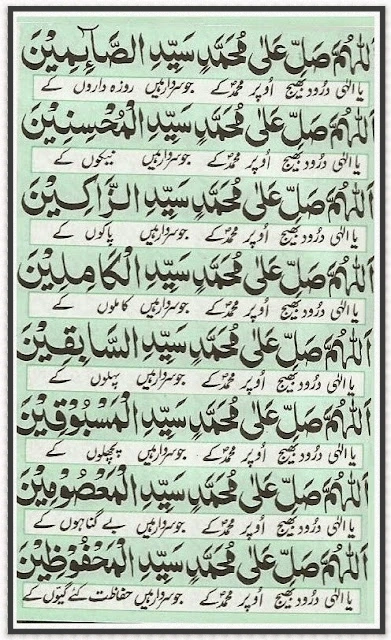 اَللّٰهُمَّ صَلِّ عَلٰى مُحَمَّدٍ سَيِّدِ الصَّآئِمِيْنَ
یا الٰہی درُود بھیج اُوپر محمدؐ کے جو سردار ہیں روزہ داروں کے
اَللّٰهُمَّ صَلِّ عَلٰى مُحَمَّدٍ سَيِّدِ الْمُحْسِنِيْنَ
یا الٰہی درُود بھیج اُوپر محمدؐ کے جو سردار ہیں نیکوں کے
اَللّٰهُمَّ صَلِّ عَلٰى مُحَمَّدٍ سَيِّدِ الزَّاكِيْنَ
یا الٰہی درُود بھیج اُوپر محمدؐ کے جو سردار ہیں پاکوں کے
اَللّٰهُمَّ صَلِّ عَلٰى مُحَمَّدٍ سَيِّدِ الْكَامِلِيْنَ
یا الٰہی درُود بھیج اُوپر محمدؐ کے جو سردار ہیں کاملوں کے
اَللّٰهُمَّ صَلِّ عَلٰى مُحَمَّدٍ سَيِّدِ السَّابِقِيْنَ
یا الٰہی درُود بھیج اُوپر محمدؐ کے جو سردار ہیں پہلوں کے
اَللّٰهُمَّ صَلِّ عَلٰى مُحَمَّدٍ سَيِّدِ الْمَسْبُوْقِيْنَ
یا الٰہی درُود بھیج اُوپر محمدؐ کے جو سردار ہیں پچھلوں کے
اَللّٰهُمَّ صَلِّ عَلٰى مُحَمَّدٍ سَيِّدِ الْمَعْصُوْمِيْنَ
یا الٰہی درُود بھیج اُوپر محمدؐ کے جو سردار ہیں بے گناہوں کے
اَللّٰهُمَّ صَلِّ عَلٰى مُحَمَّدٍ سَيِّدِ الْمَحْفُوْظِيْنَ
یا الٰہی درُود بھیج اُوپر محمدؐ کے جو سردار ہیں حفاظت کئے گیوں کے